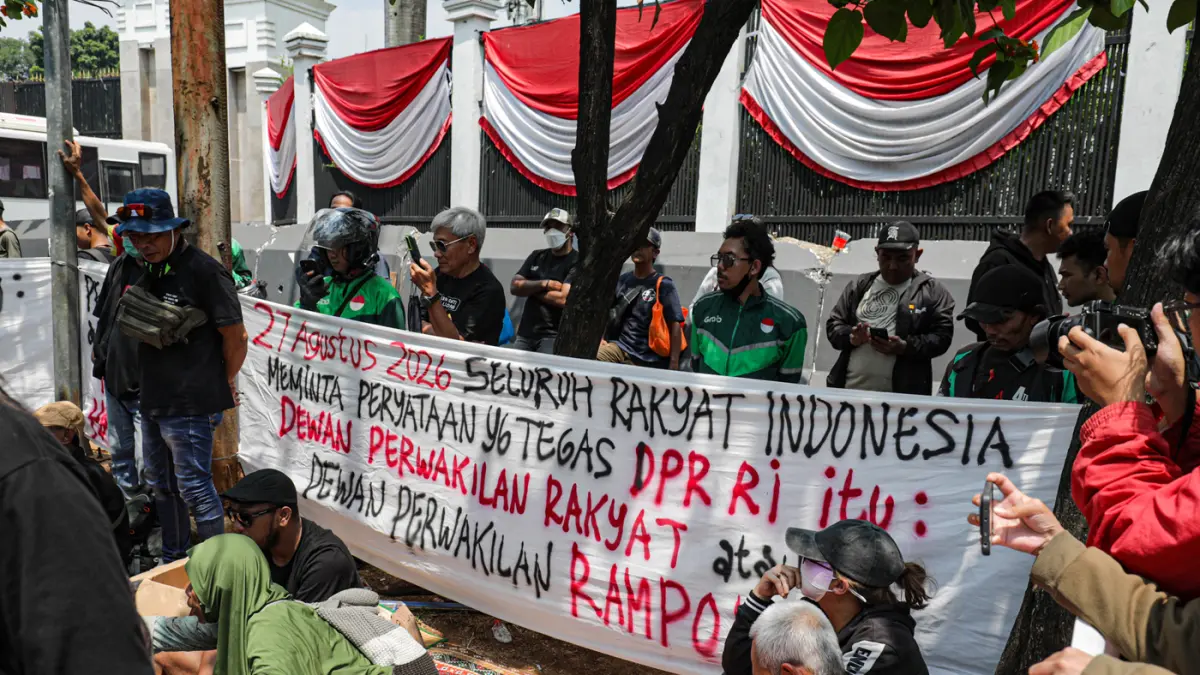 27 Agustus 2026 SELURUH RAKYAT INDONESIA
MEMINTA PERYATAAN YG TEGAS DPR RI itu :
DEWAN PERWAKILAN RAKYAT atau
DEWAN PERWAKILAN RAMPO
Grab